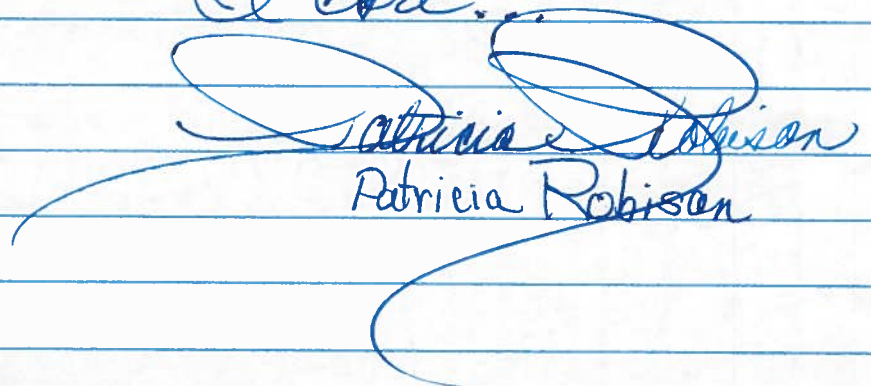 Patricia Robison
Patricia Robison